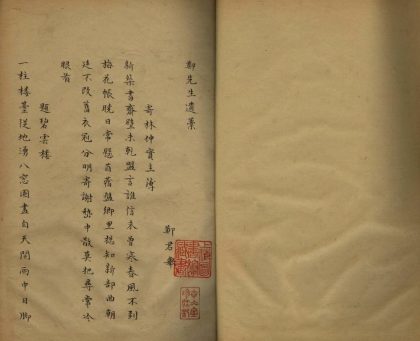 鄭先生遺藁
寄林仲實主簿
鄭君
新築書齋壁未乾盟言誰信未曾寒春風不到
梅花帳曉日常懸苜蓿盤鄉里想知新部曲朝
廷不改舊衣冠分明寄謝嵇中散莫把尋常冷
眼看
題碧雲樓
一柱樓臺從地湧八窓圖畫自天開雨中日脚